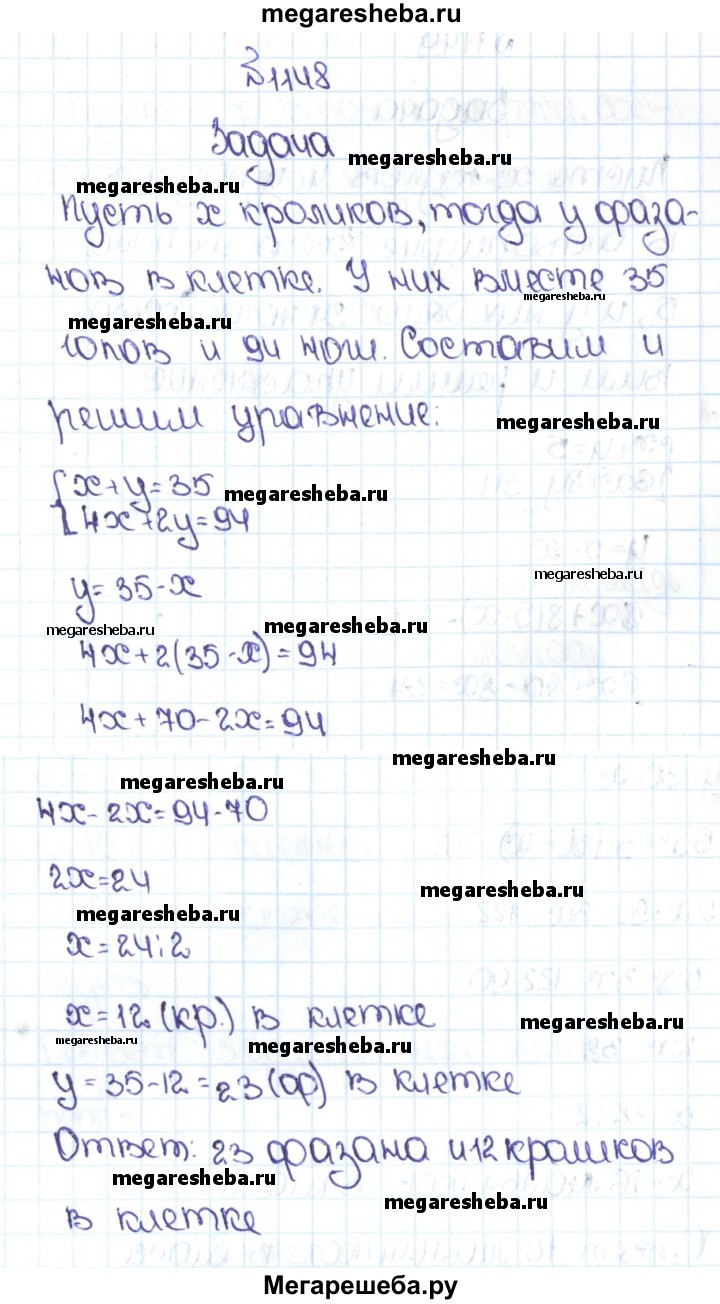 megaresheba.ru
№1148
Задача
megaresheba.ru
megaresheba.ru
Пусть x кроликов, тогда y фаза-
нов в клетке. У них вместе 35
megaresheba.ru
megaresheba.ru
голов и 94 ног. Составим и
решим уравнение:
megaresheba.ru
{x+y=35
megaresheba.ru
4x+2y=94
y=35-x
megaresheba.ru
megaresheba.ru
megaresheba.ru
4x+2(35-x)=94
4x+70-2x=94
megaresheba.ru
megaresheba.ru
4x-2x=94-70
2x=24
megaresheba.ru
megaresheba.ru
x=24:2
x=12 (кр.) в клетке
megaresheba.ru
megaresheba.ru
megaresheba.ru
y=35-12=23(ф) в клетке
Ответ: 23 фазана и 12 кроликов
megaresheba.ru
megaresheba.ru
в клетке
Мегарешеба.ру